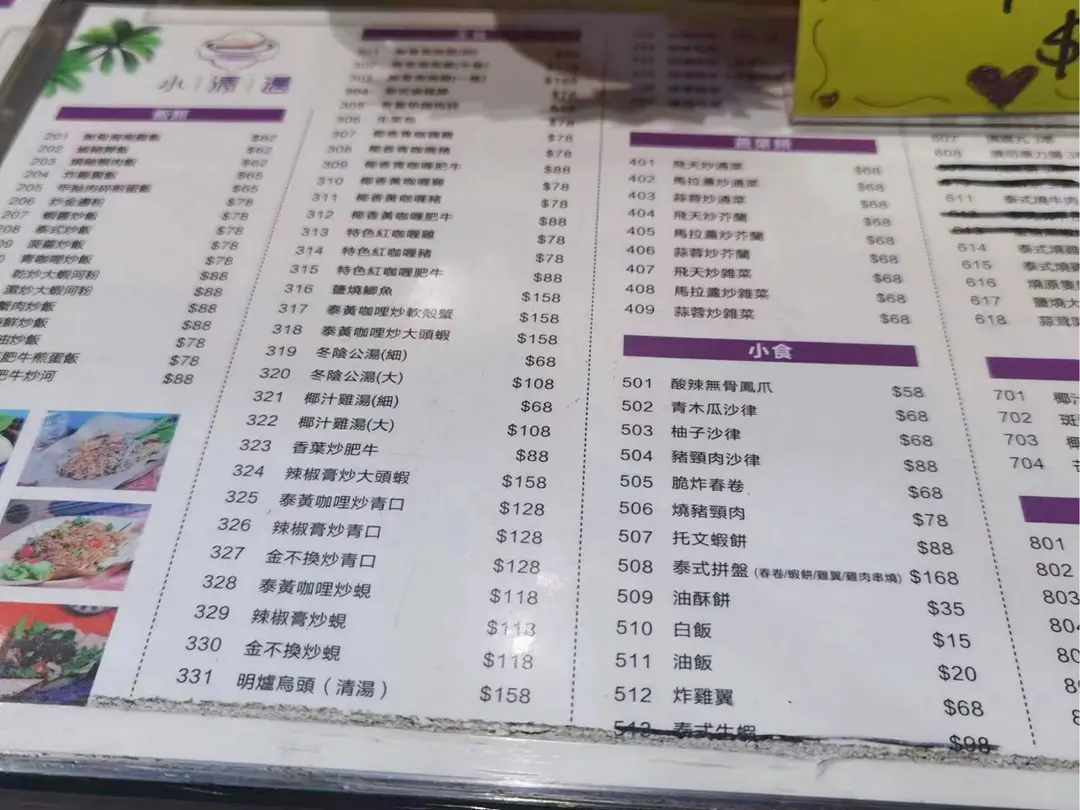 $
飯類
201 $62
202 $62
203 燒豬頸肉飯 $62
204 炸雞翼飯 $65
205 甲拋肉碎煎蛋飯 $65
206 炒金邊粉 $78
207 蝦醬炒飯 $78
208 泰式炒飯 $78
09 菠蘿炒飯 $78
0 青咖哩炒飯 $78
乾炒大蝦河粉 $88
濕炒大蝦河粉 $88
蟹肉炒飯 $88
海鮮炒飯 $88
油炒飯 $78
肥牛煎蛋飯 $78
肥牛炒河 $88
305
306 生菜包 $78
307 椰香青咖喱雞 $78
308 椰香青咖喱豬 $78
309 椰香青咖喱肥牛 $88
310 椰香黃咖喱雞 $78
311 椰香黃咖喱豬 $78
312 椰香黃咖喱肥牛 $88
313 特色紅咖喱雞 $78
314 特色紅咖喱豬 $78
315 特色紅咖喱肥牛 $88
316 鹽燒鯽魚 $158
317 泰黃咖哩炒軟殼蟹 $158
318 泰黃咖哩炒大頭蝦 $158
319 冬陰公湯(細) $68
320 冬陰公湯(大) $108
321 椰汁雞湯(細) $68
322 椰汁雞湯(大) $108
323 香葉炒肥牛 $88
324 辣椒膏炒大頭蝦 $158
325 泰黃咖哩炒青口 $128
326 辣椒膏炒青口 $128
327 金不換炒青口 $128
328 泰黃咖哩炒蜆 $118
329 辣椒膏炒蜆 $118
330 金不換炒蜆 $118
331 明爐烏頭（清湯） $158
蔬菜類
401 飛天炒通菜 $68
402 馬拉盞炒通菜 $68
403 蒜蓉炒通菜 $68
404 飛天炒芥蘭 $68
405 馬拉盞炒芥蘭 $68
406 蒜蓉炒芥蘭 $68
407 飛天炒雜菜 $68
408 馬拉盞炒雜菜 $68
409 蒜蓉炒雜菜 $68
小食
501 酸辣無骨鳳爪 $58
502 青木瓜沙律 $68
503 柚子沙律 $68
504 豬頸肉沙律 $88
505 脆炸春卷 $68
506 燒豬頸肉 $78
507 托文蝦餅 $88
508 泰式拼盤 (春卷/蝦餅/雞翼/雞肉串燒) $168
509 油酥餅 $35
510 白飯 $15
511 油飯 $20
512 炸雞翼 $68
513 泰式生蝦 $98
607
608
611 泰式燒牛肉
614 泰式燒雞
615 泰式燒
616 燒原隻
617 鹽燒大
618 蒜茸
701 椰汁
702 斑
703 椰
704
801
802
803
80
80
8
8